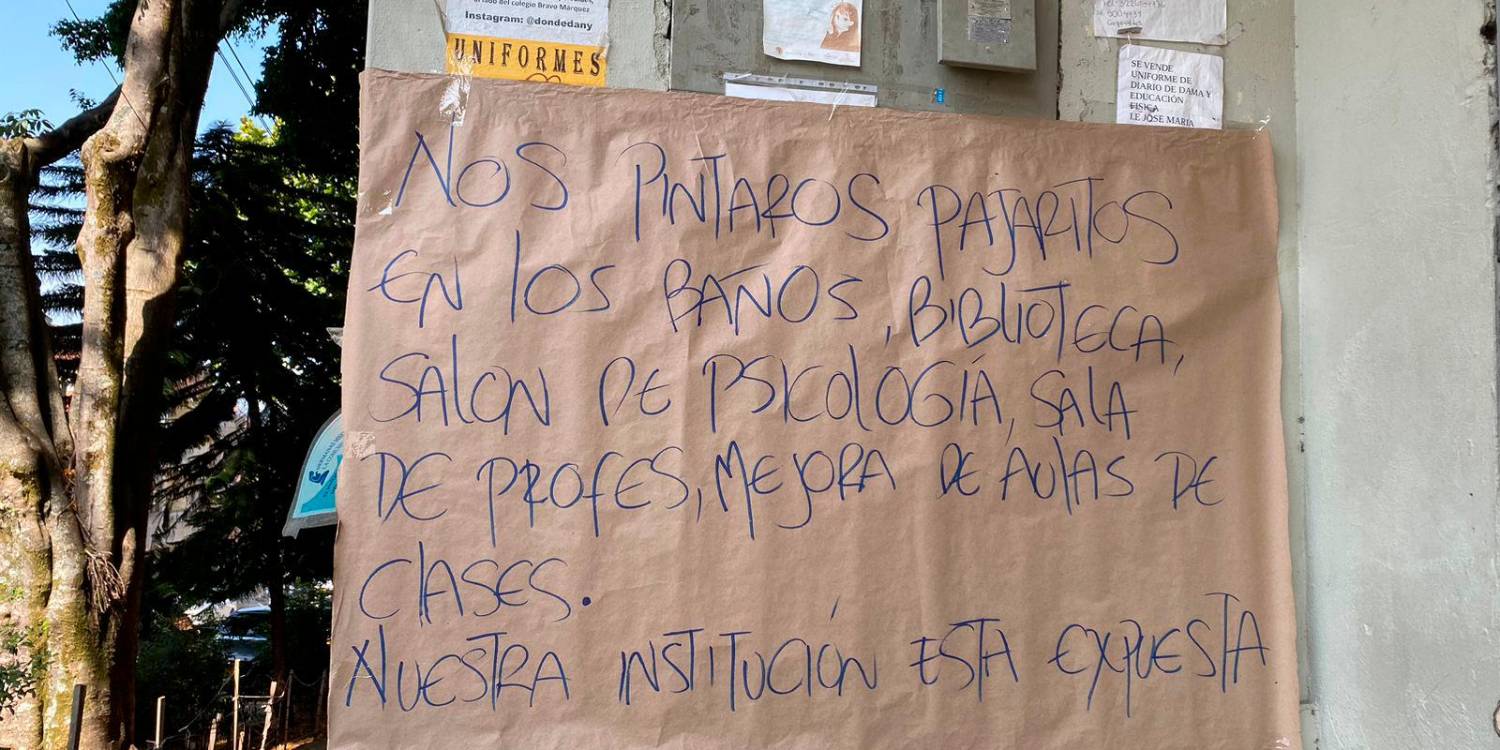 al lado del colegio Bravo Márquez
Instagram: @dondedany
UNIFORMES
SE VENDE
UNIFORME DE
DIARIO DE DAMA Y
EDUCACIÓN
FISICA
I.E JOSE MARIA
NOS PINTAROS PAJARITOS
EN LOS BAÑOS, BIBLIOTECA,
SALON DE PSICOLOGÍA, SALA
DE PROFES, MEJORA DE AULAS DE
CLASES.
NUESTRA INSTITUCIÓN ESTA EXPUESTA